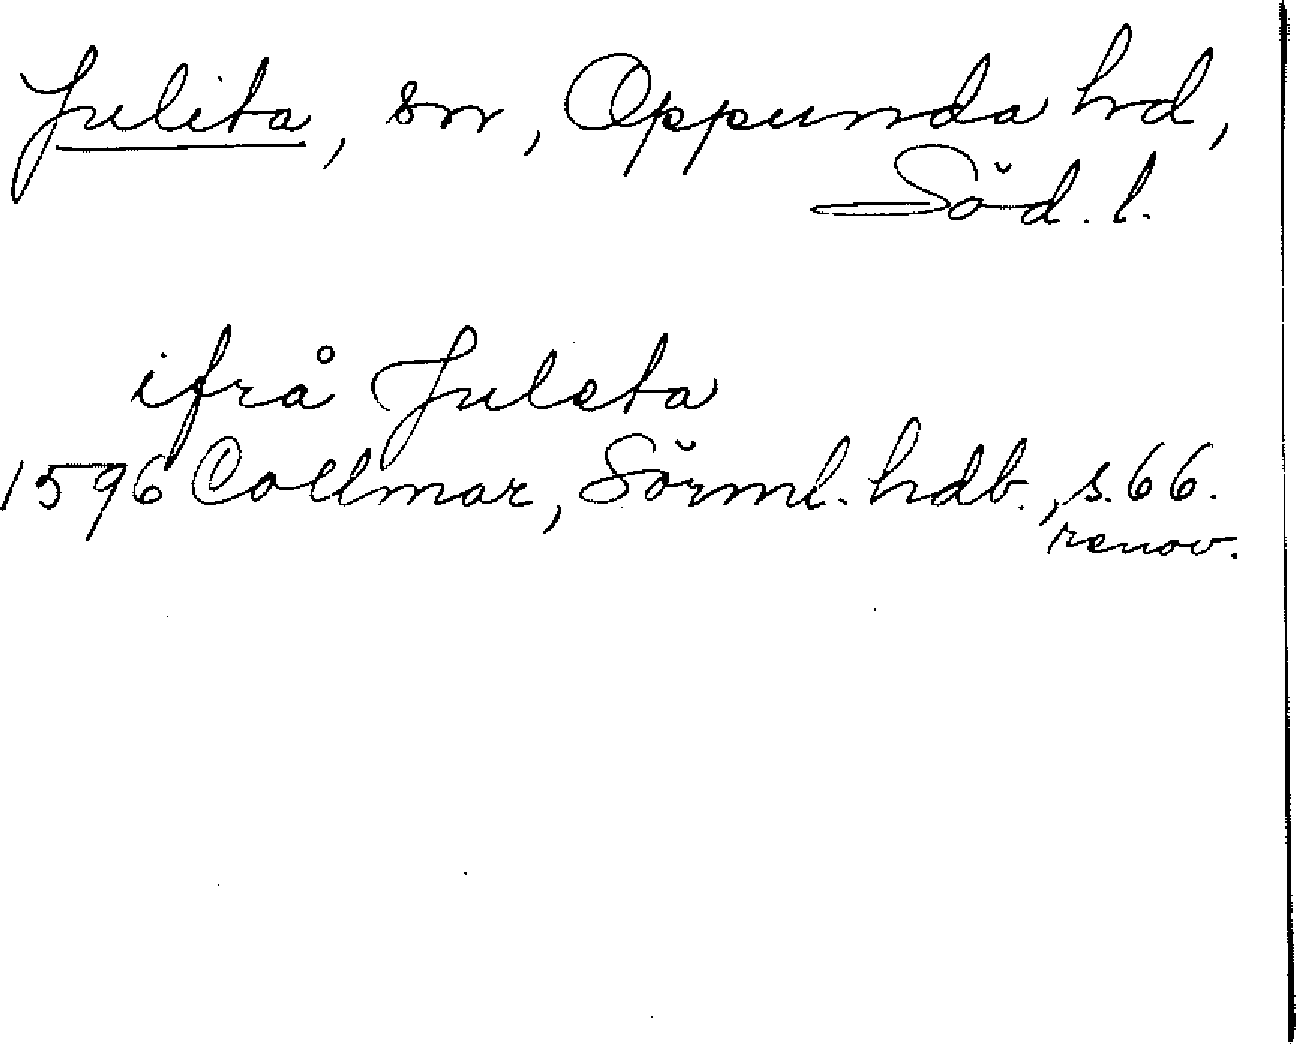 Julita, sn, Oppunda hd,
Söd. l.
ifrå Juleta
1596 Collmar, Sörml. hdb., s. 66.
renov.